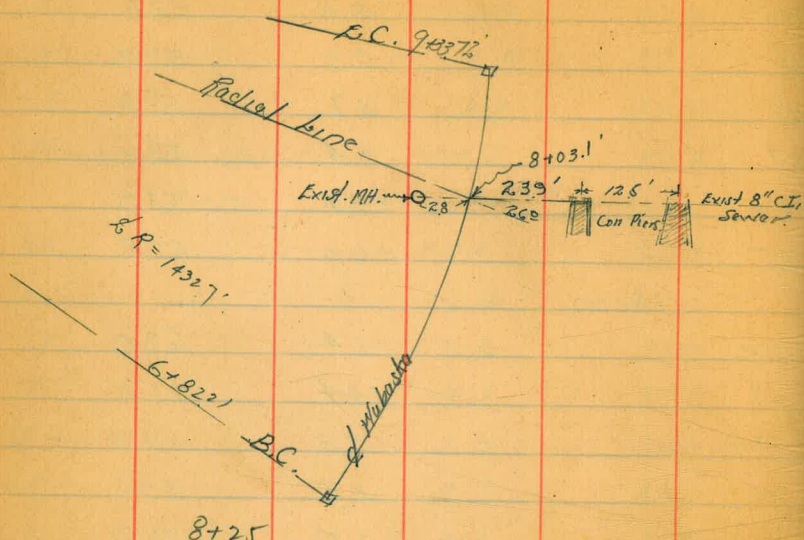 E.C. 9+33.72
Radial Line
8+03.1'
23.9'
12.5'
Exist. MH.
2.8
26°
Con Piers
Exist 8" C.I.
Sewer.
℄ R = 1432.7'
6+82.21
B.C.
℄ Wabaska
8+25